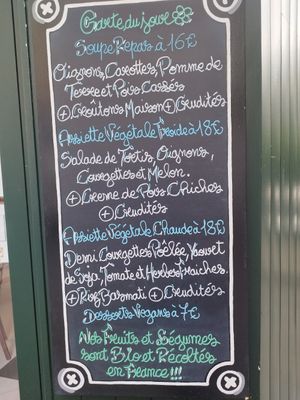 Carte du jour
Soupe Repas à 16€
Oignons, Carottes, Pomme de
Terre et Pois Cassés
+ Croûtons Maison + Crudités
Assiette Végétale Froide à 18€
Salade de Tortis, Oignons,
Courgettes et Melon.
+ Creme de Pois Chiches
+ Crudités
Assiette Végétale Chaude à 18€
Demi Courgettes Poêlée, Yaourt
de Soja, Tomate et Herbes Fraiches.
+ Riz Basmati + Crudités
Desserts Vegans à 7€
Nos Fruits et Légumes
sont Bio et Récoltés
en France !!!